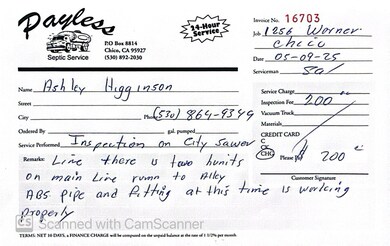 Payless
Septic Service
P.O Box 8814
Chico, CA 95927
(530) 892-2030
24-Hour
Service
Invoice No. 16703
Job 1256 Warner
Chico
Date 05-09-25
Serviceman
Name Ashley Higginson
Street
City Phone (530) 864-9349
Ordered By gal. pumped
Service Performed Inspection on City Sawer
Remarks: Line there is two hunits
on main Line runn to Alley
ABS pipe and fitting at this time is working
properly
Service Charge
Inspection Fee 200
Vacuum Truck
Materials
CREDIT CARD
CHG
Please Pay $ 200
Customer Signature
TERMS: NET 10 DAYS, a FINANCE CHARGE will be computed on the unpaid balance at the rate of 1 1/2% per month.
CS Scanned with CamScanner